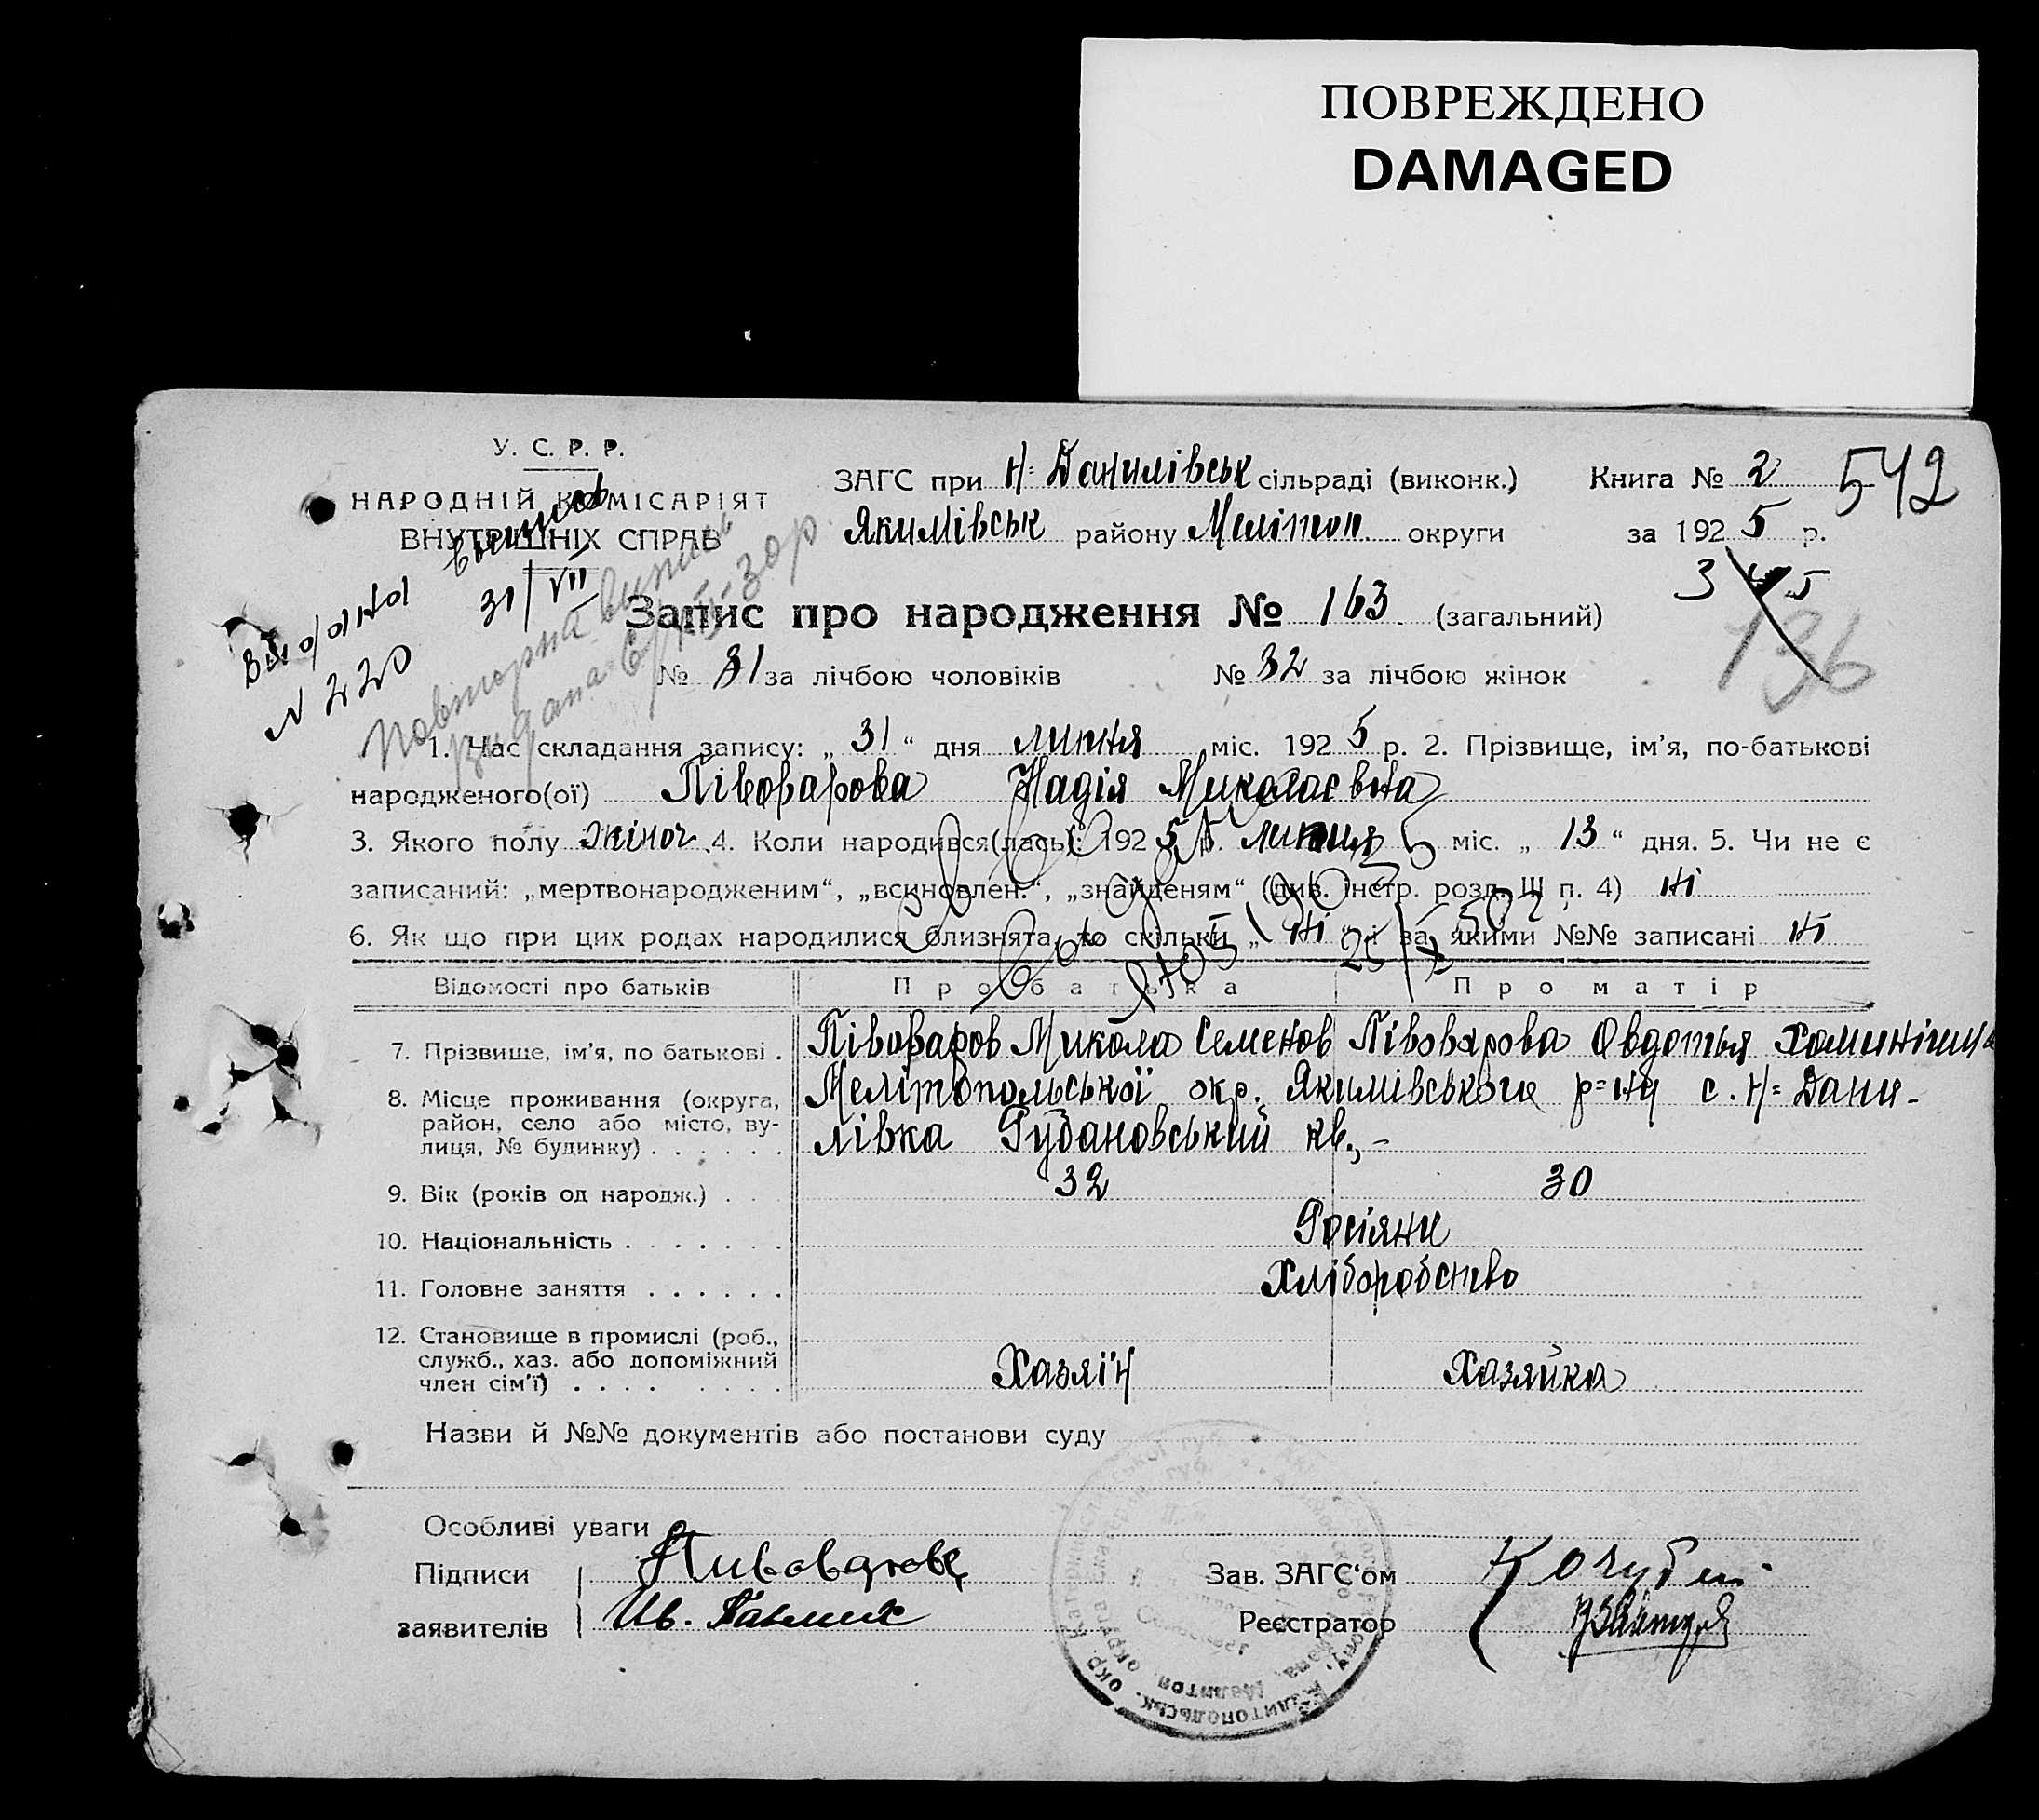 ПОВРЕЖДЕНО
DAMAGED
У. С. Р. Р.
НАРОДНІЙ КОМІСАРІЯТ
ВНУТРІШНІХ СПРАВ
ЗАГС при Н-Данилівськ сільраді (виконк.)
Якимівськ району Мелітоп. округи
Книга № 2
за 1925 р.
542
3 45
136
Видана выпись
31/VII
N 220
Повторна випись
видана
Запис про народження № 163 (загальний)
№ 81 за лічбою чоловіків № 82 за лічбою жінок
1. Час складання запису: „ 31 “ дня липня міс. 1925 р. 2. Прізвище, ім’я, по-батькові
народженого(ої) Півоварова Надія Миколаєвна
3. Якого полу жіноч. 4. Коли народився(лась): 1925 р. липня міс. „ 13 “ дня. 5. Чи не є
записаний: „мертвонародженим“, „всиновлен.“, „знайденям“ (див. інстр. розд. III п. 4) ні
6. Як що при цих родах народилися близнята, то скільки „ ні “ і за якими №№ записані ні
Відомості про батьків Про батька Про матір
7. Прізвище, ім’я, по батькові . Півоваров Микола Семенов Півоварова Овдотья
8. Місце проживання (округа, район, село або місто, вулиця, № будинку) . . . . . . Мелітопольської окр. Якимівського р=ну с. Н=Дани-
лівка Губановський кв., –
9. Вік (років од народж.) . . 32 30
10. Національність . . . . . . . Росіяни
11. Головне заняття . . . . . . Хліборобство
12. Становище в промислі (роб., служб., хаз. або допоміжний член сім’ї) . . . . . . . . Хазяїн Хазяйка
Назви й №№ документів або постанови суду
Особливі уваги
Підписи
заявителів
Зав. ЗАГС‘ом Кочубей
Реєстратор